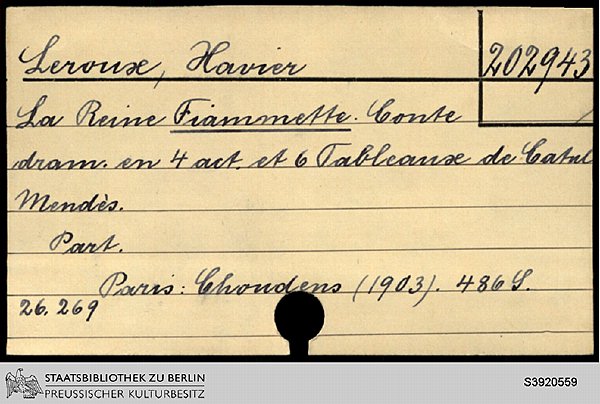 Leroux, Xavier
202943
La Reine Fiammette. Conte
dram. en 4 act. et 6 Tableaux de Catul
Mendès.
Part.
Paris: Choudens (1903). 486 S.
26. 269
STAATSBIBLIOTHEK ZU BERLIN
PREUSSISCHER KULTURBESITZ
S3920559